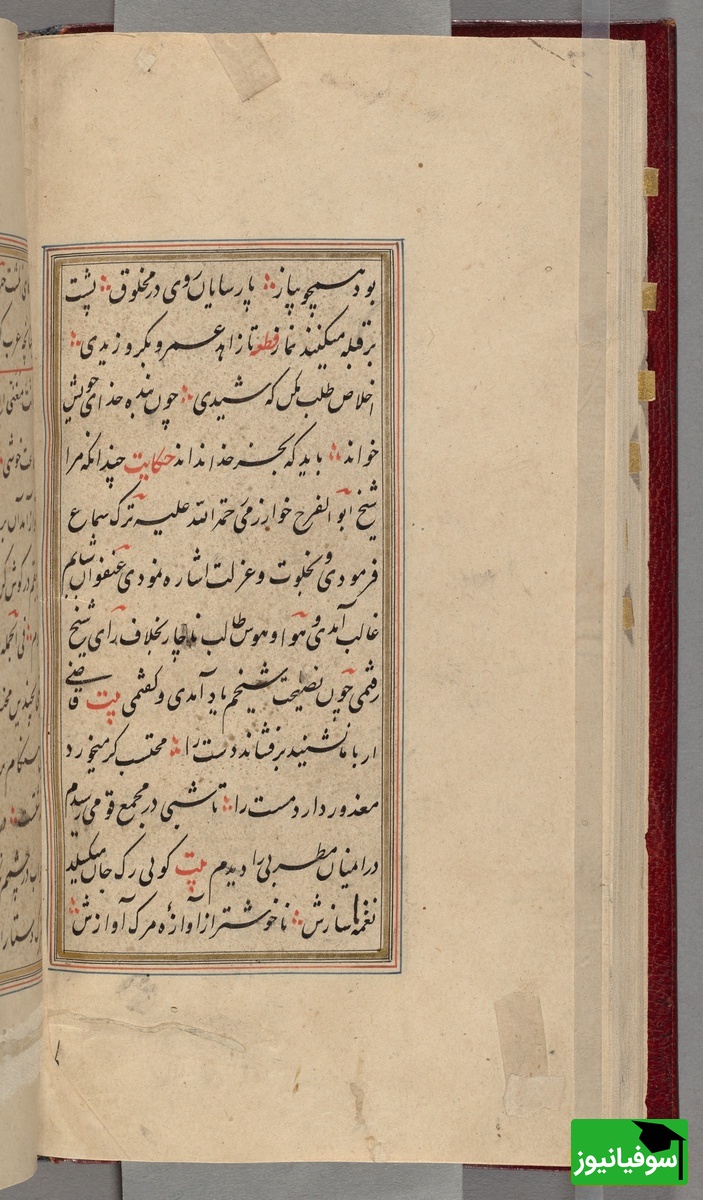 بود همچو پیاز ؞ پارسایان روی در مخلوق ؞ پشت
بر قبله میکنند نماز قطعه تا زاهد عمرو و بکر و زیدی ؞
اخلاص طلب مکن که شیدی ؞ چون بنده خدای خویش
خواند ؞ باید که بجز خدا نداند حکایت چندانکه مرا
شیخ ابو الفرح خوارزمی رحمة الله علیه ترک سماع
فرمودی و بخلوت و عزلت اشاره نمودی عنفوان شبابم
غالب آمدی و هوا و هوس طالب ناچار بخلاف رای شیخ
رفتمی چون نصیحت شیخم یاد آمدی و گفتمی بیت قاضی
ار با ما نشیند بر فشاند دست را ؞ محتسب کر می خورد
معذور دارد مست را ؞ تا شبی در مجمع قومی رسیدم
در المیان مطربی را دیدم بیت کویی رک جان میکسلد
نغمه ناسازش ؞ ناخوشتر از آوازه مرک آوازش ؞
سوفیانیوز